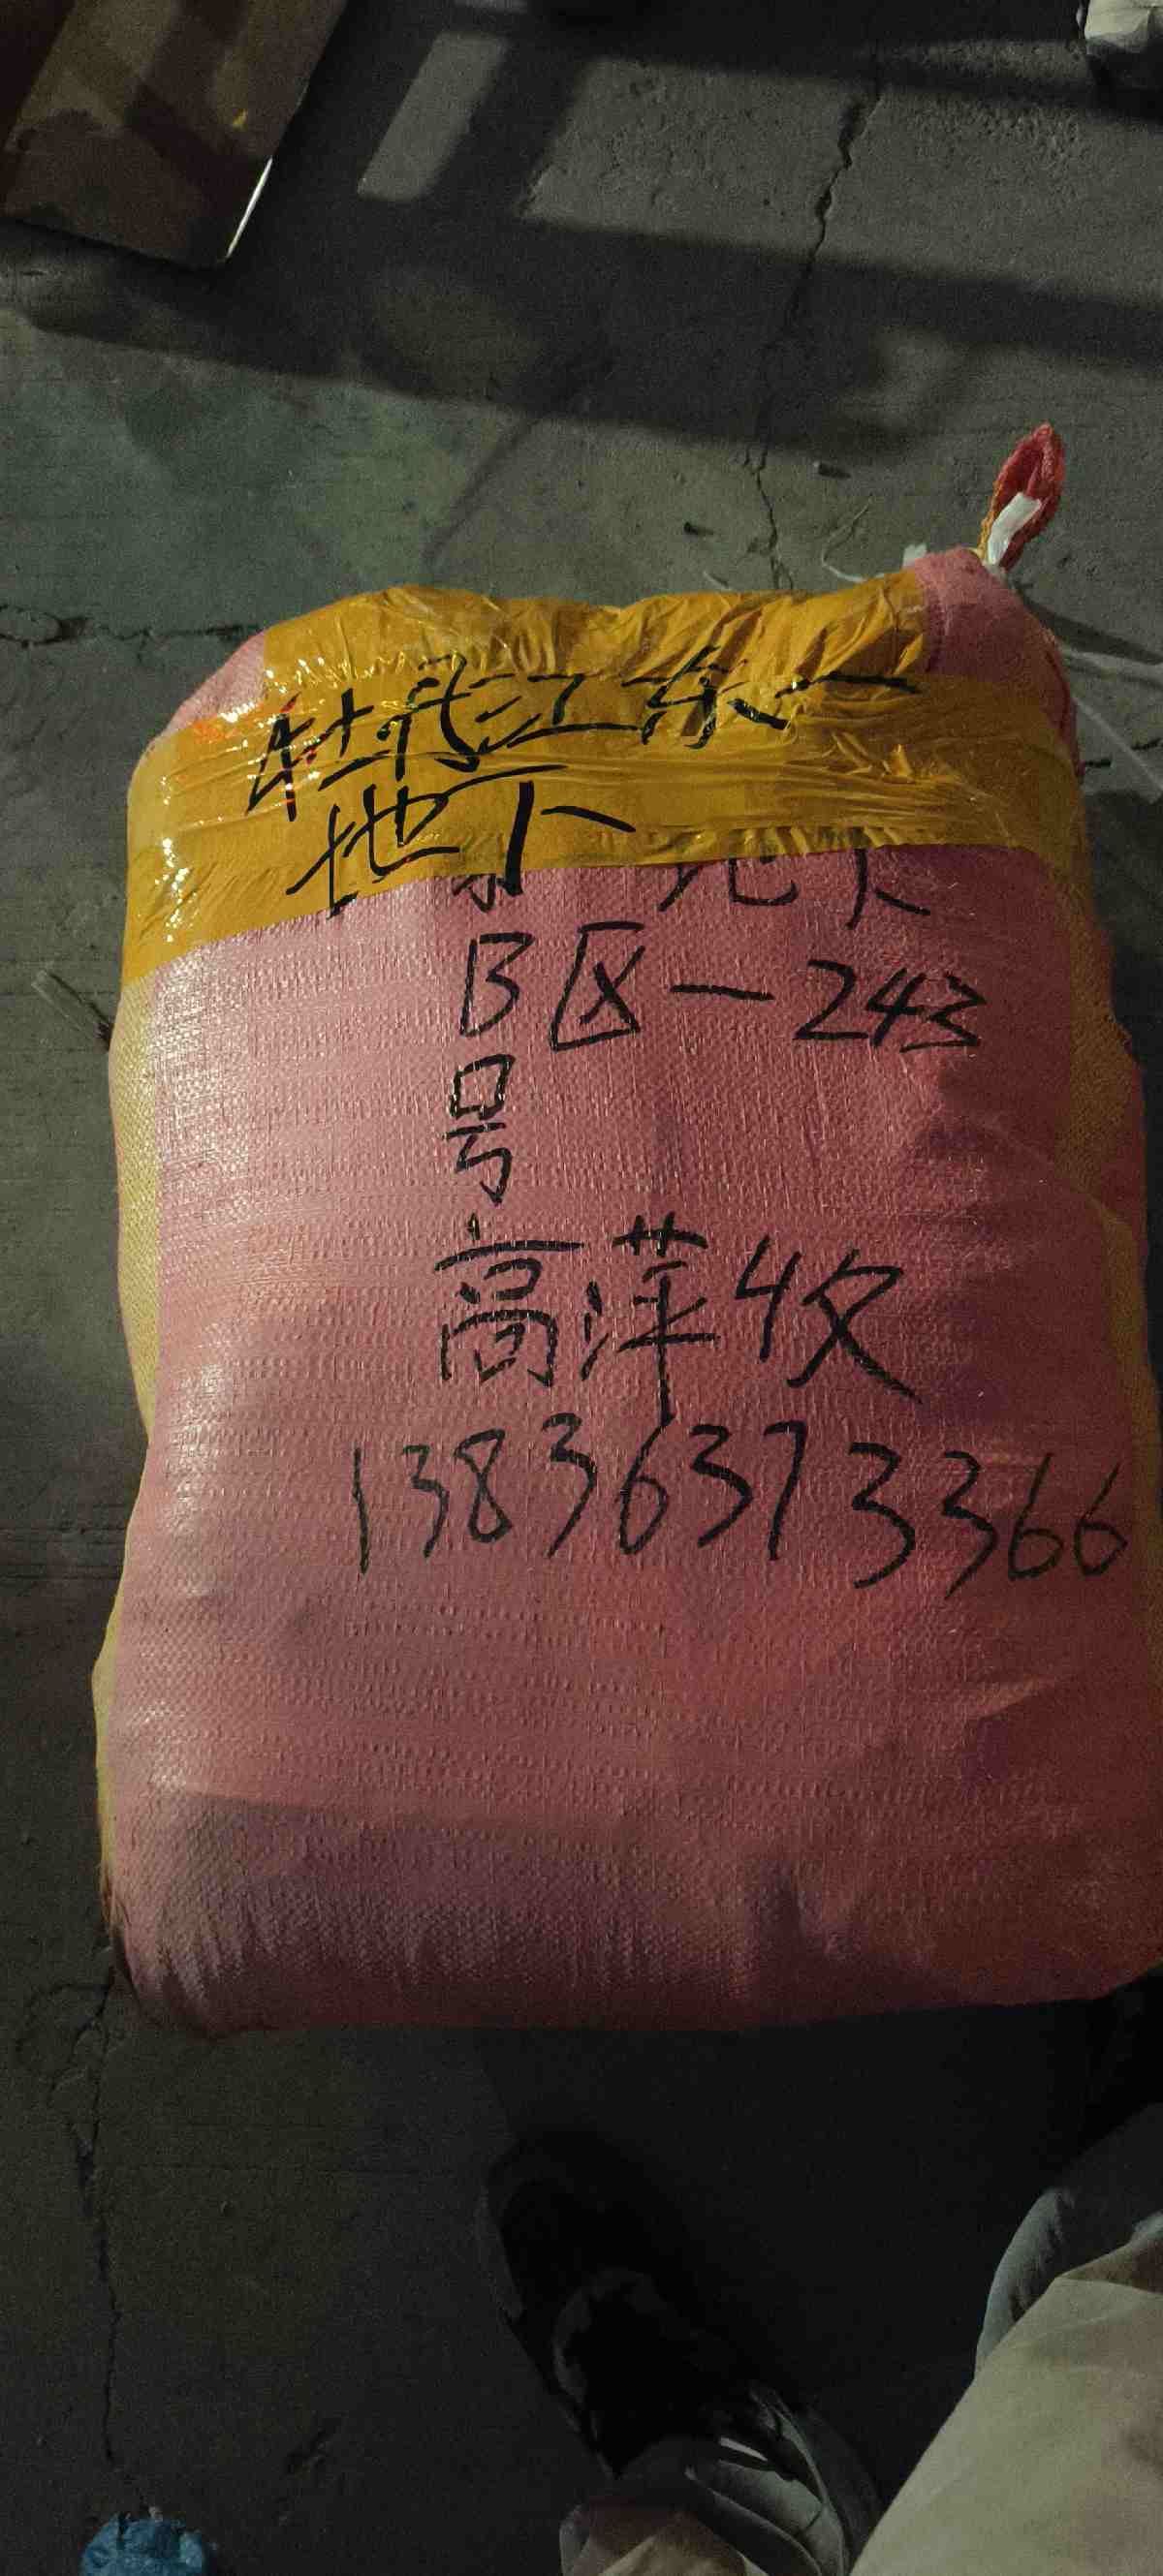 牡丹江东一
地下
地下
B区一243
号
高萍收
13836373366